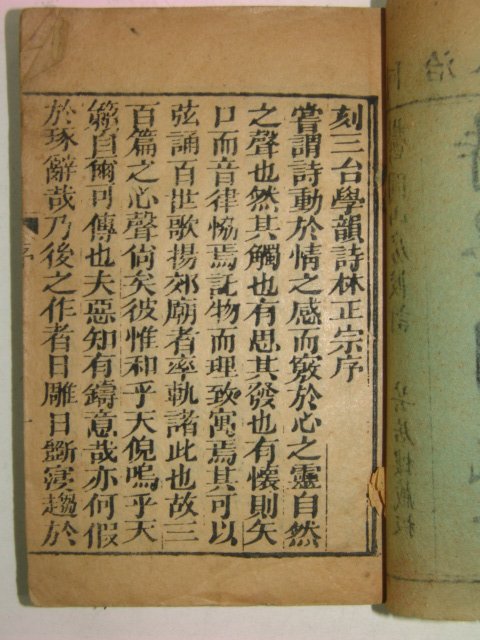 刻三台學韻詩林正宗序
嘗謂詩動於情之感而竅於心之靈自然
之聲也然其觸也有思其發也有懷則矢
口而音律恊焉託物而理致寓焉其可以
弦誦百世歌揚郊廟者率軌諸此也故三
百篇之心聲倘矣彼惟和乎天倪鳴乎天
籟自爾可傳也夫惡知有鑄意哉亦何假
於琢辭哉乃後之作者日雕日斵寖趨於
序